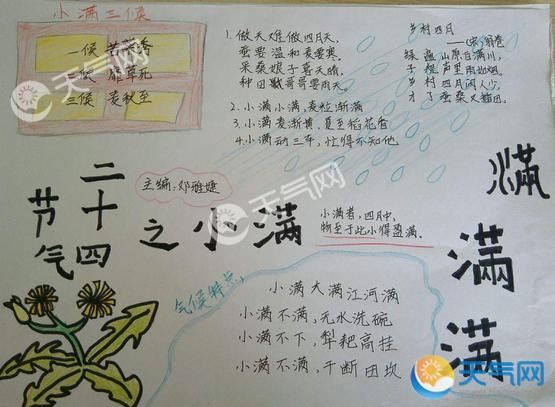 小满三候
一候 苦菜秀
二候 靡草死
三候 麦秋至
1. 做天难做四月天,
蚕要温和麦要寒。
采桑娘子喜天晴,
种田哥哥要雨天。
2. 小满小满,麦粒渐满
3. 小满麦渐黄,夏至稻花香
4. 小满动三车,忙得不知他
乡村四月
——(宋)翁卷
绿遍山原白满川,
子规声里雨如烟。
乡村四月闲人少,
才了蚕桑又插田。
二十四
节气
主编:邓雅婕
之小满
小满者,四月中,
物至于此小得盈满。
满
满
满
气候特点:
小满大满江河满
小满不满,无水洗碗
小满不下,犁耙高挂
小满不满,干断田坎
天气网
天气网
天气网
天气网